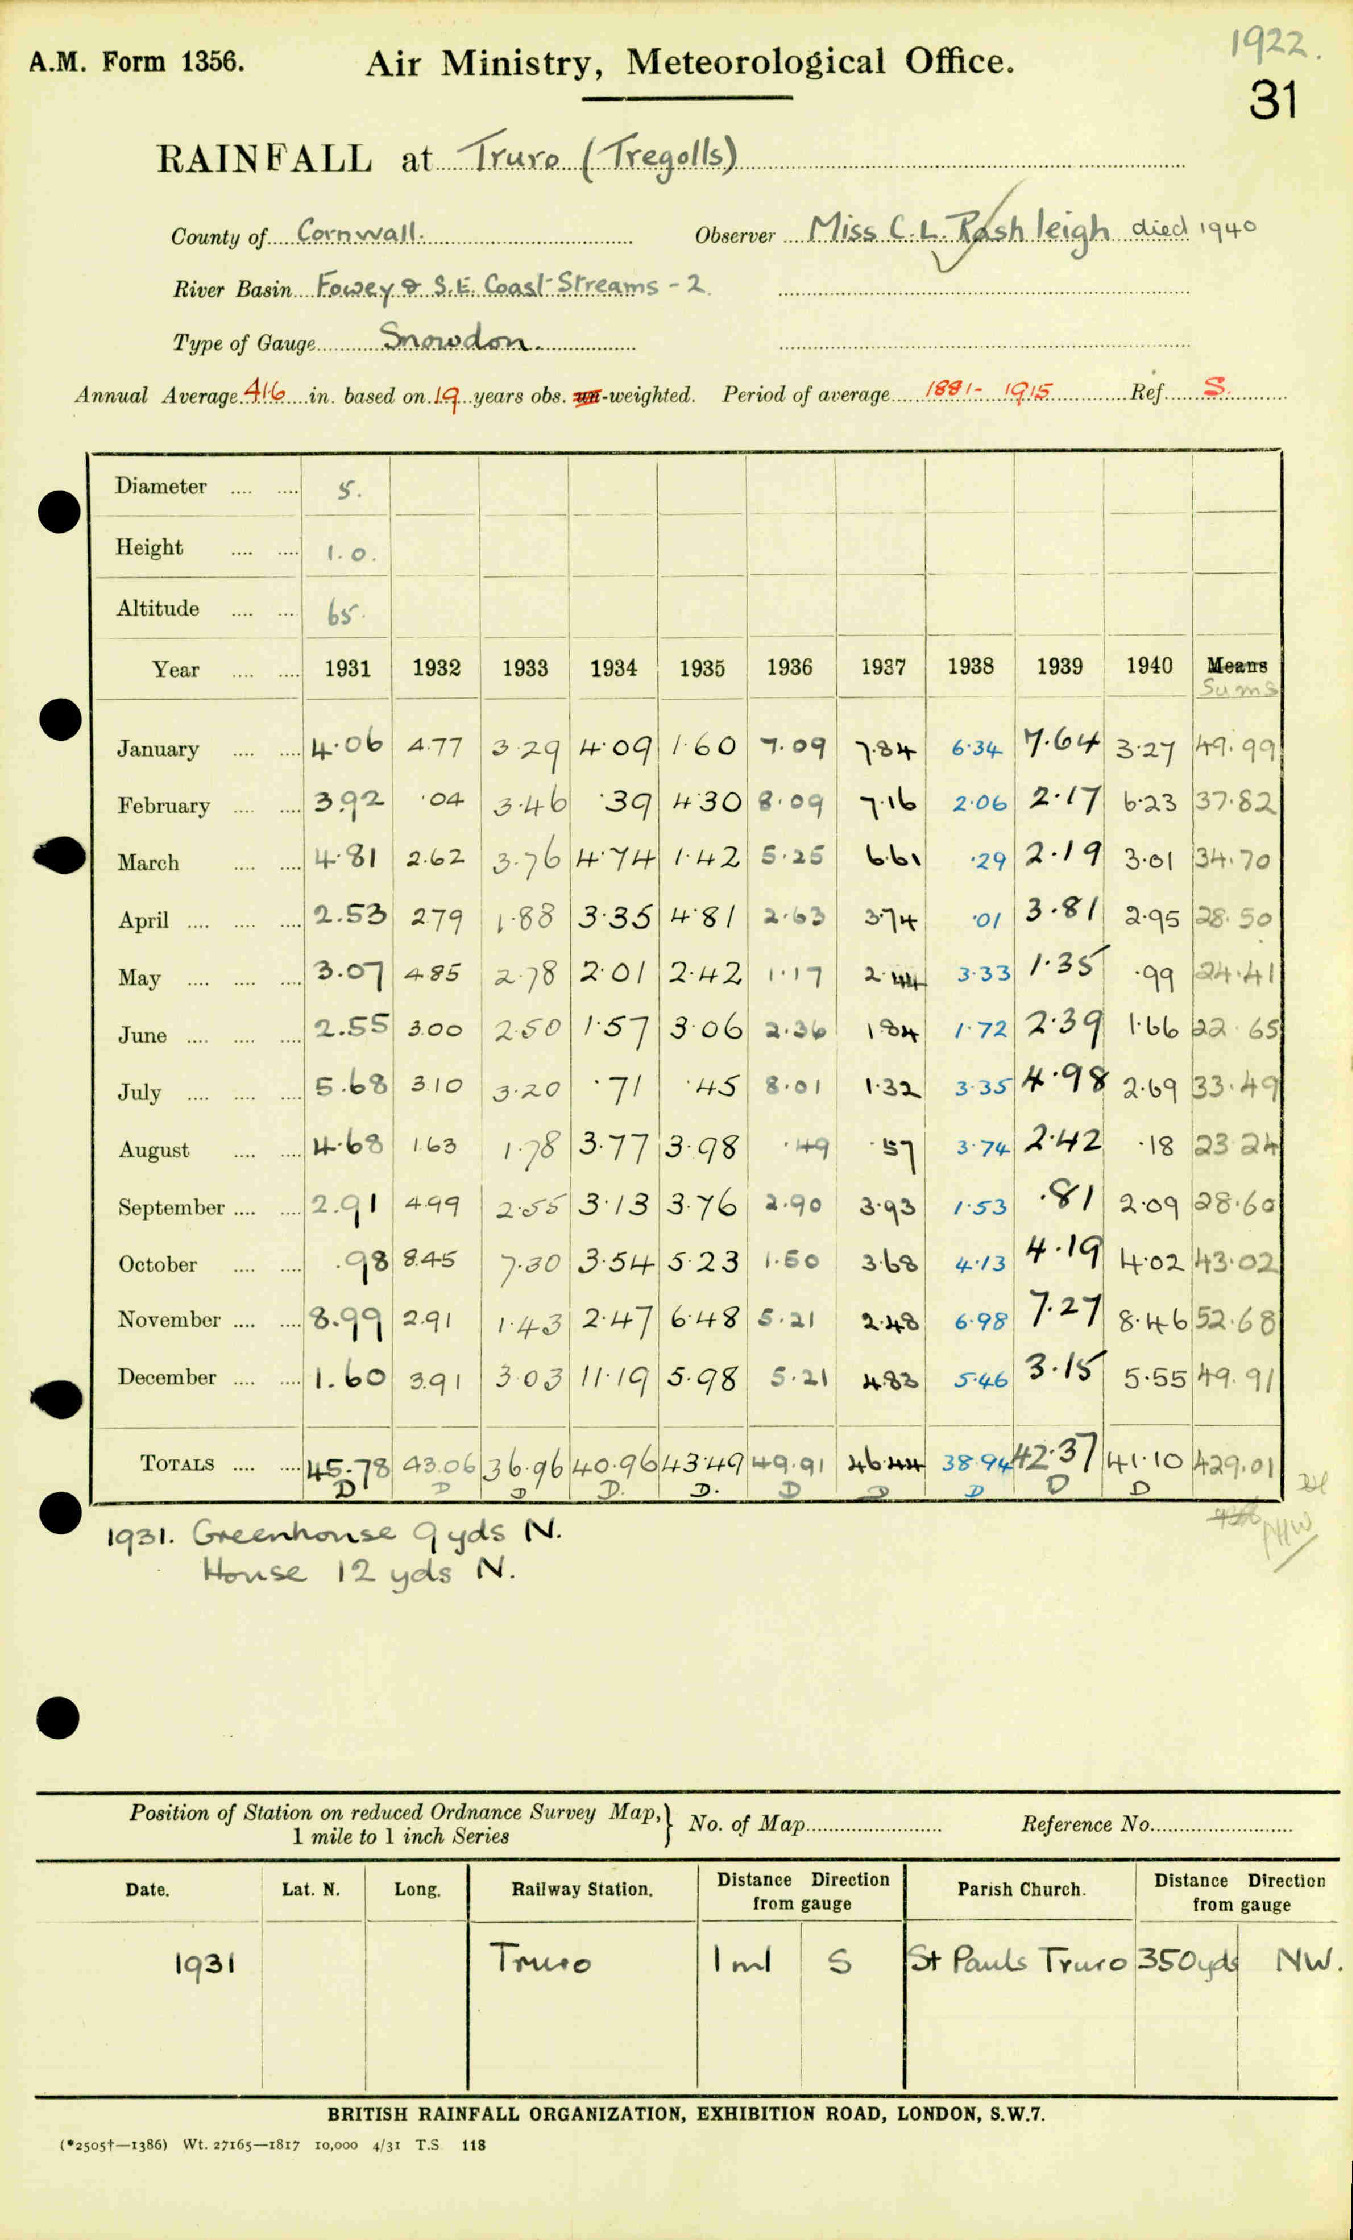 1922.
A.M. Form 1356. Air Ministry, Meteorological Office.
31
RAINFALL at Truro (Tregolls)
County of Cornwall. Observer Miss C.L. Rashleigh died 1940
River Basin Fowey & S.E. Coast Streams - 2.
Type of Gauge Snowdon.
Annual Average 41.6 in. based on 19 years obs. un-weighted. Period of average 1881- 1915 Ref. S.
Diameter 5.
Height 1.0.
Altitude 65.
Year 1931 1932 1933 1934 1935 1936 1937 1938 1939 1940 Means
Sums
January 4.06 4.77 3.29 4.09 1.60 7.09 7.84 6.34 7.64 3.27 49.99
February 3.92 .04 3.46 .39 4.30 8.09 7.16 2.06 2.17 6.23 37.82
March 4.81 2.62 3.76 4.74 1.42 5.25 6.61 .29 2.19 3.01 34.70
April 2.53 2.79 1.88 3.35 4.81 2.63 3.74 .01 3.81 2.95 28.50
May 3.07 4.85 2.78 2.01 2.42 1.17 2.44 3.33 1.35 .99 24.41
June 2.55 3.00 2.50 1.57 3.06 2.36 1.84 1.72 2.39 1.66 22.65
July 5.68 3.10 3.20 .71 .45 8.01 1.32 3.35 4.98 2.69 33.49
August 4.68 1.63 1.78 3.77 3.98 .49 .57 3.74 2.42 .18 23.24
September 2.91 4.99 2.55 3.13 3.76 2.90 3.93 1.53 .81 2.09 28.60
October .98 8.45 7.30 3.54 5.23 1.50 3.68 4.13 4.19 4.02 43.02
November 8.99 2.91 1.43 2.47 6.48 5.21 2.48 6.98 7.27 8.46 52.68
December 1.60 3.91 3.03 11.19 5.98 5.21 4.83 5.46 3.15 5.55 49.91
TOTALS 45.78 43.06 36.96 40.96 43.49 49.91 46.44 38.94 42.37 41.10 429.01
D D D D. D. D D D D D
1931. Greenhouse 9 yds N.
House 12 yds N.
Position of Station on reduced Ordnance Survey Map,} No. of Map Reference No.
1 mile to 1 inch Series
Date. Lat. N. Long. Railway Station. Distance Direction from gauge Parish Church. Distance Direction from gauge
1931 Truro 1 ml S St Pauls Truro 350yds NW.
BRITISH RAINFALL ORGANIZATION, EXHIBITION ROAD, LONDON, S.W.7.
(*2505†—1386) Wt. 27165—1817 10,000 4/31 T.S. 118